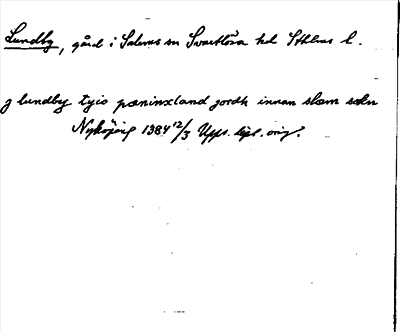 Lundby, gård i Salems sn Svartlösa hd Sthlms l.
j lundby tyio pæninxland jordh innan slæm sokn
Nyköping 1384 12/3 Upps. dipl. orig.